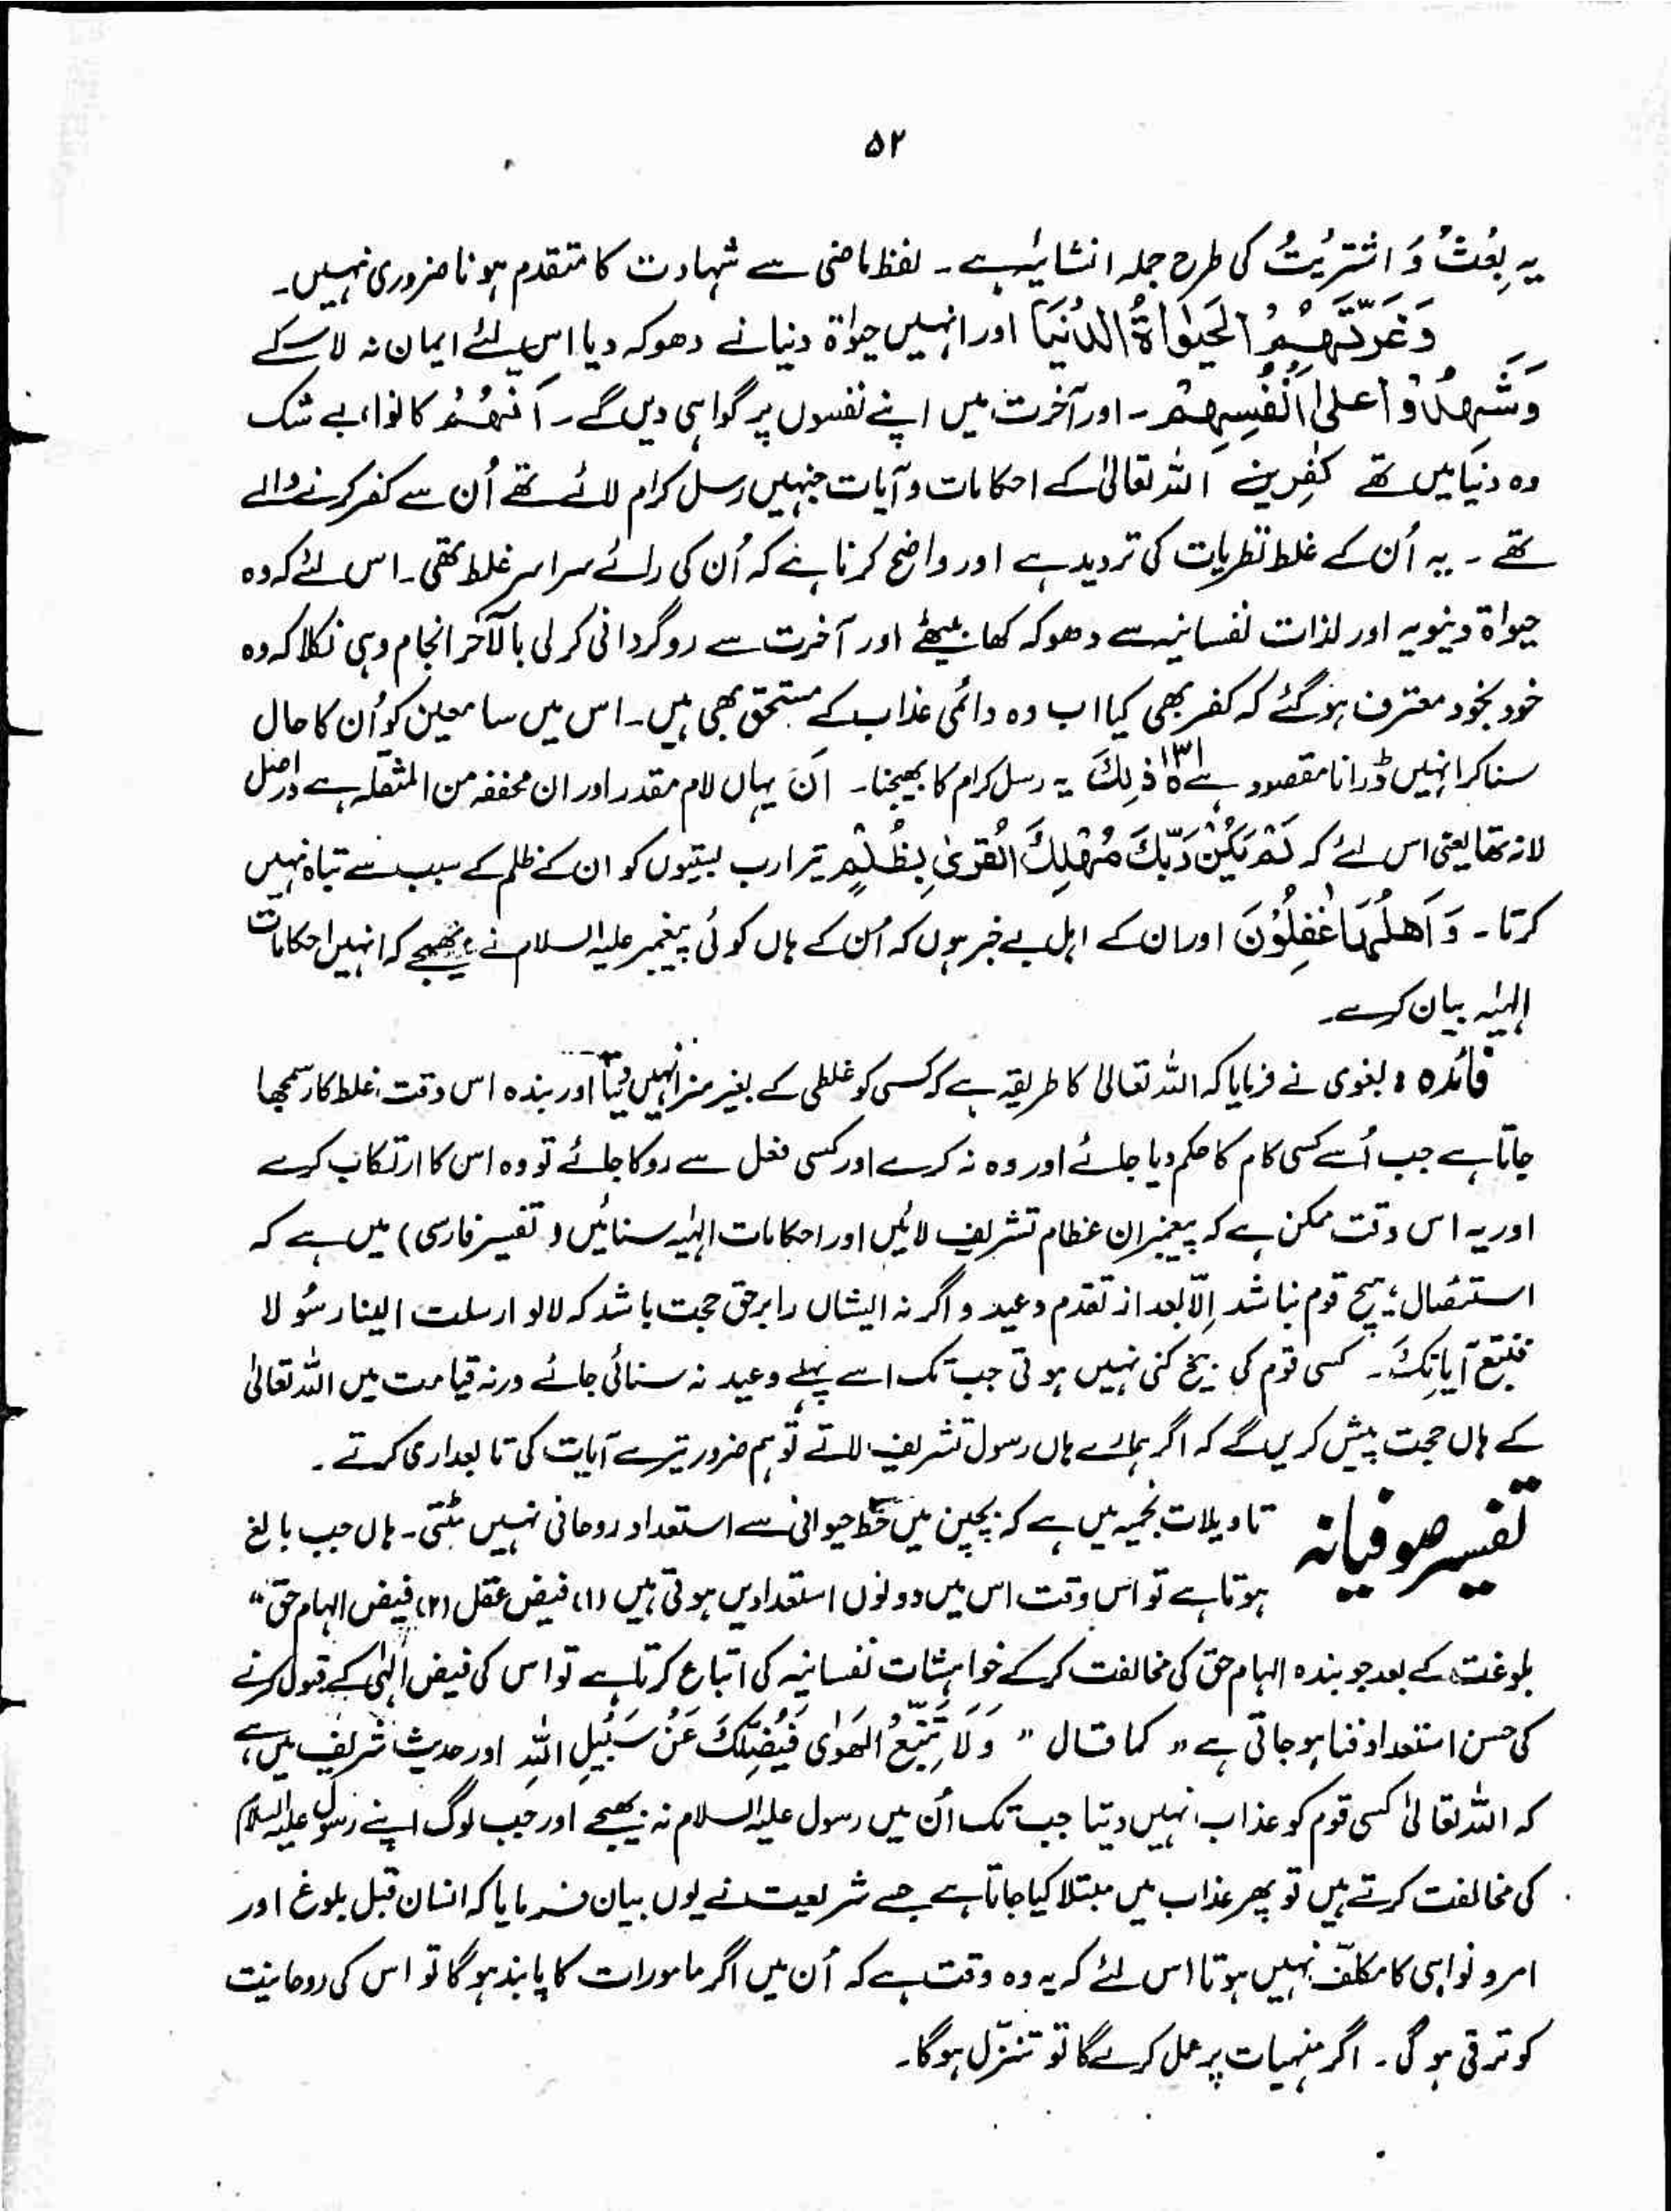 ۵۲
یہ بِعْتُ وَ اشْتَرَیْتُ کی طرح جملہ انشائیہ ہے۔ لفظ ماضی سے شہادت کا متقدم ہونا ضروری نہیں۔
وَغَرَّتْهُمُ الْحَیٰوةُ الدُّنْیَا اور انہیں حیوٰۃ دنیا نے دھوکہ دیا اس لئے ایمان نہ لا سکے
وَشَهِدُوْا عَلیٰ اَنْفُسِهِمْ۔ اور آخرت میں اپنے نفسوں پر گواہی دیں گے۔ اَنَّهُمْ کانوا، بے شک
وہ دنیا میں تھے کٰفِرِین اللہ تعالیٰ کے احکامات و آیات جنہیں رسل کرام لائے تھے اُن سے کفر کرنے والے
تھے۔ یہ اُن کے غلط نظریات کی تردید ہے اور واضح کرنا ہے کہ اُن کی رائے سراسر غلط تھی۔ اس لئے کہ وہ
حیوٰۃ دنیویہ اور لذات نفسانیہ سے دھوکہ کھا بیٹھے اور آخرت سے روگردانی کر لی بالآخر انجام وہی نکلا کہ وہ
خود بخود معترف ہو گئے کہ کفر بھی کیا اب وہ دائمی عذاب کے مستحق بھی ہیں۔ اس میں سامعین کو اُن کا حال
سنا کر انہیں ڈرانا مقصود ہے ۱۳۱ ذٰلِكَ یہ رسل کرام کا بھیجنا۔ اَنْ یہاں لام مقدر اور ان مخففہ من المثقلہ ہے دراصل
لانہ تھا یعنی اس لئے کہ لَمْ یَكُنْ رَّبُّكَ مُهْلِكَ الْقُرٰی بِظُلْمٍ تیرا رب بستیوں کو ان کے ظلم کے سبب سے تباہ نہیں
کرتا۔ وَ اَهْلُهَا غٰفِلُوْنَ اور ان کے اہل بے خبر ہوں کہ اُن کے ہاں کوئی پیغمبر علیہ السلام نے بھیجے کہ انہیں احکامات
الٰہیہ بیان کرے۔
فائدہ : بغوی نے فرمایا کہ اللہ تعالیٰ کا طریقہ ہے کہ کسی کو غلطی کے بغیر سزا نہیں دیتا اور بندہ اس وقت غلط کار سمجھا
جاتا ہے جب اُسے کسی کام کا حکم دیا جائے اور وہ نہ کرے اور کسی فعل سے روکا جائے تو وہ اس کا ارتکاب کرے
اور یہ اس وقت ممکن ہے کہ پیغمبران عظام تشریف لائیں اور احکامات الٰہیہ سنائیں (تفسیر فارسی) میں ہے کہ
استیصال ہیچ قوم نباشد اِلّا بعد از تقدم وعید و اگر نہ ایشاں را برحق حجت باشد کہ لالو ارسلت الینا رسُولا
فنتبع آیاتِكَ۔ کسی قوم کی بیخ کنی نہیں ہوتی جب تک اسے پہلے وعید نہ سنائی جائے ورنہ قیامت میں اللہ تعالیٰ
کے ہاں حجت پیش کریں گے کہ اگر ہمارے ہاں رسول تشریف لاتے تو ہم ضرور تیرے آیات کی تابعداری کرتے۔
تفسیر صوفیانہ تاویلات نجمیہ میں ہے کہ بچپن میں حظ حیوانی سے استعداد روحانی نہیں مٹتی۔ ہاں جب بالغ
ہوتا ہے تو اس وقت اس میں دونوں استعدادیں ہوتی ہیں (۱) فیض عقل (۲) فیض الہام حق"
بلوغت کے بعد جو بندہ الہام حق کی مخالفت کر کے خواہشات نفسانیہ کی اتباع کرتا ہے تو اس کی فیض الٰہی کے قبول کرنے
کی حسن استعداد فنا ہو جاتی ہے " کما قال " وَلَا تَتَّبِعِ الْهَوٰی فَیُضِلَّكَ عَنْ سَبِیْلِ اللّٰهِ اور حدیث شریف میں ہے
کہ اللہ تعالیٰ کسی قوم کو عذاب نہیں دیتا جب تک اُن میں رسول علیہ السلام نہ بھیجے اور جب لوگ اپنے رسول علیہ السلام
کی مخالفت کرتے ہیں تو پھر عذاب میں مبتلا کیا جاتا ہے جسے شریعت نے یوں بیان فرمایا کہ انسان قبل بلوغ اور
امر و نواہی کا مکلّف نہیں ہوتا اس لئے کہ یہ وہ وقت ہے کہ اُن میں اگر مامورات کا پابند ہو گا تو اس کی روحانیت
کو ترقی ہو گی۔ اگر منہیات پر عمل کرے گا تو تنزّل ہوگا۔